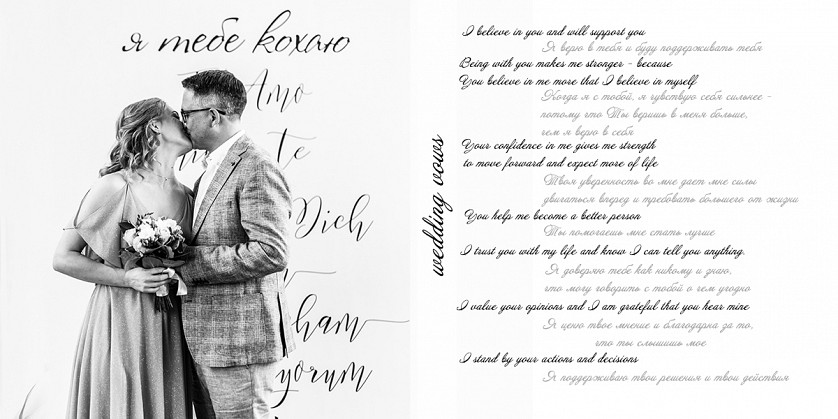 я тебе кохаю
Amo
te
Dich
ham
yorum
wedding vows
I believe in you and will support you
Я верю в тебя и буду поддерживать тебя
Being with you makes me stronger - because
You believe in me more that I believe in myself
Когда я с тобой, я чувствую себя сильнее -
потому что Ты веришь в меня больше,
чем я верю в себя
Your confidence in me gives me strength
to move forward and expect more of life
Твоя уверенность во мне дает мне силы
двигаться вперед и требовать большего от жизни
You help me become a better person
Ты помогаешь мне стать лучше
I trust you with my life and know I can tell you anything.
Я доверяю тебе как никому и знаю,
что могу говорить с тобой о чем угодно
I value your opinions and I am grateful that you hear mine
Я ценю твое мнение и благодарна за то,
что ты слышишь мое
I stand by your actions and decisions
Я поддерживаю твои решения и твои действия